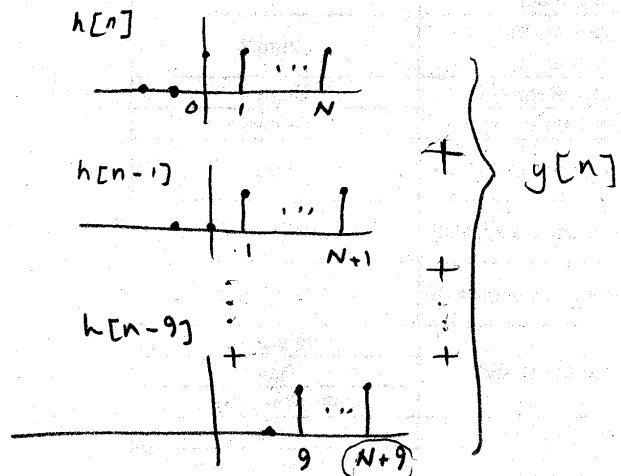 h[n]
...
0 1 N
+
h[n-1]
...
1 N+1
y[n]
+
h[n-9]
+
+
...
9 N+9